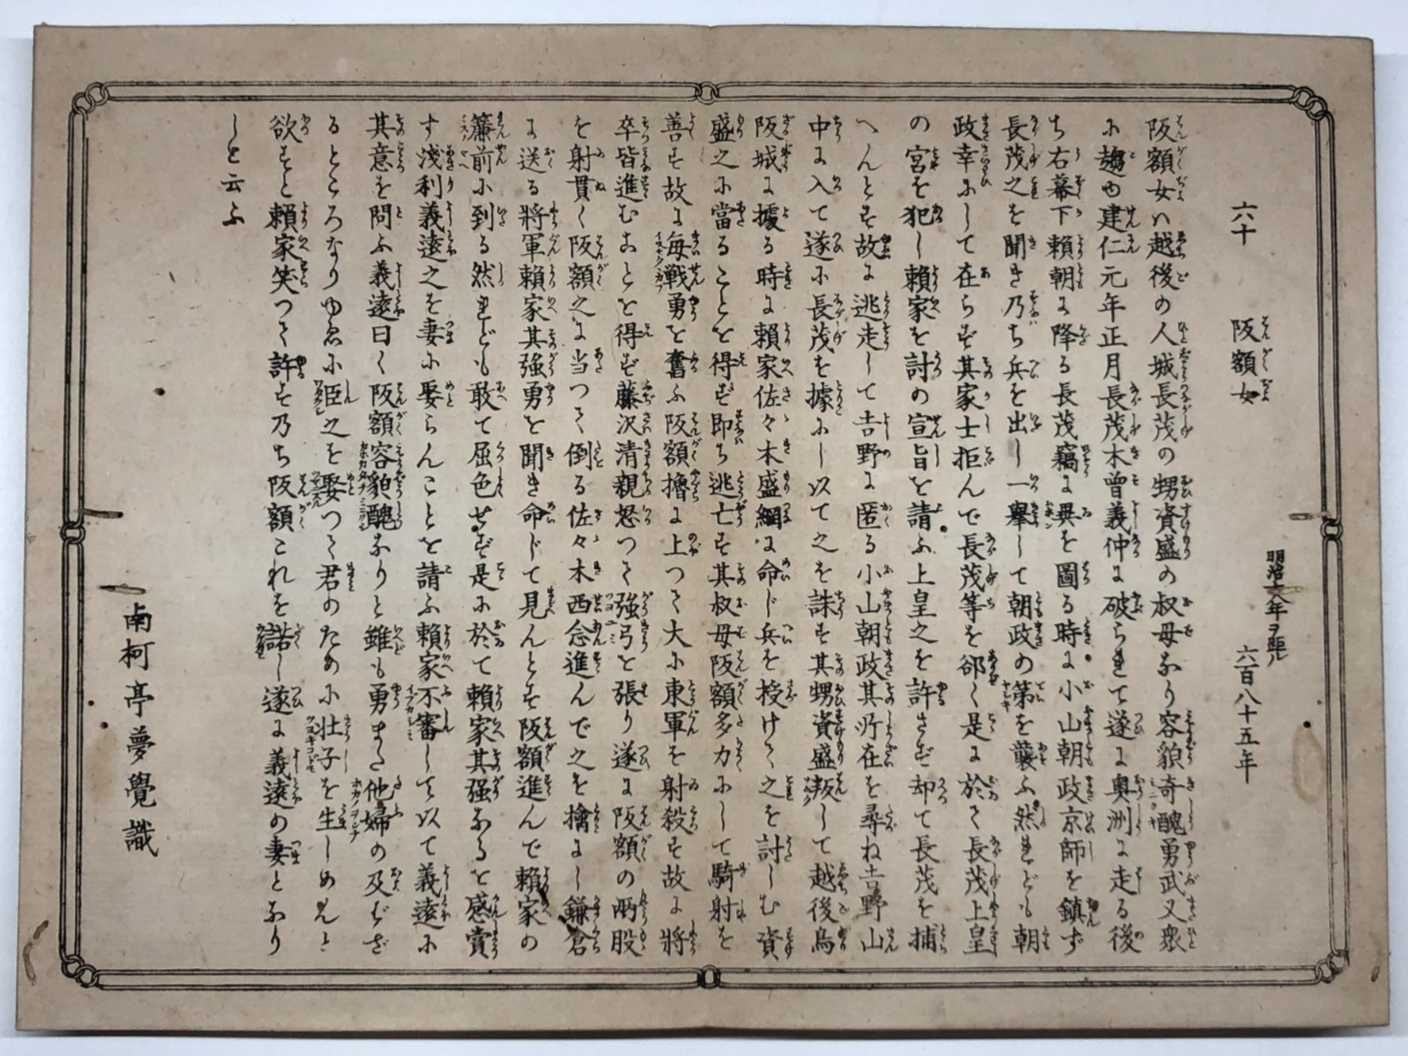 六十　阪額女
明治十八年ヲ距ル
六百八十五年
阪額女ハ越後の人城長茂の甥資盛の叔母なり容貌奇醜勇武又衆
に趨ゆ建仁元年正月長茂木曽義仲に破られて遂に奥洲に走る後
ち右幕下頼朝に降る長茂竊に異を圖る時に小山朝政京師を鎮ず
長茂之を聞き乃ち兵を出し一擧して朝政の第を襲ふ然れども朝
政幸にして在らず其家士拒んで長茂等を郤く是に於て長茂上皇
の宮を犯し頼家を討の宣旨を請ふ上皇之を許さず却て長茂を捕
へんとす故に逃走して吉野に匿る小山朝政其所在を尋ね吉野山
中に入て遂に長茂を據にし以て之を誅す其甥資盛叛して越後鳥
阪城に據る時に頼家佐々木盛綱に命じ兵を授けて之を討しむ資
盛之に當ることを得ず即ち逃亡す其叔母阪額多力にして騎射を
善す故に毎戦勇を奮ふ阪額擔に上つて大に東軍を射殺す故に將
卒皆進むことを得ず藤沢清親怒つて強弓を張り遂に阪額の両股
を射貫く阪額之に当つて倒る佐々木西念進んで之を擒にし鎌倉
に送る將軍頼家其強勇を聞き命じて見んとす阪額進んで頼家の
簾前に到る然れども敢て屈色なず是に於て頼家其强なるを感賞
す浅利義遠之を妻に娶らんことを請ふ頼家不審して以て義遠に
其意を問ふ義遠曰く阪額容貌醜なりと雖も勇また他婦の及ばざ
るところなりゆゑに臣之を娶つて君のために壮子を生しめんと
欲すと頼家笑つて許す乃ち阪額これを諾し遂に義遠の妻となり
しと云ふ
南柯亭夢覺識